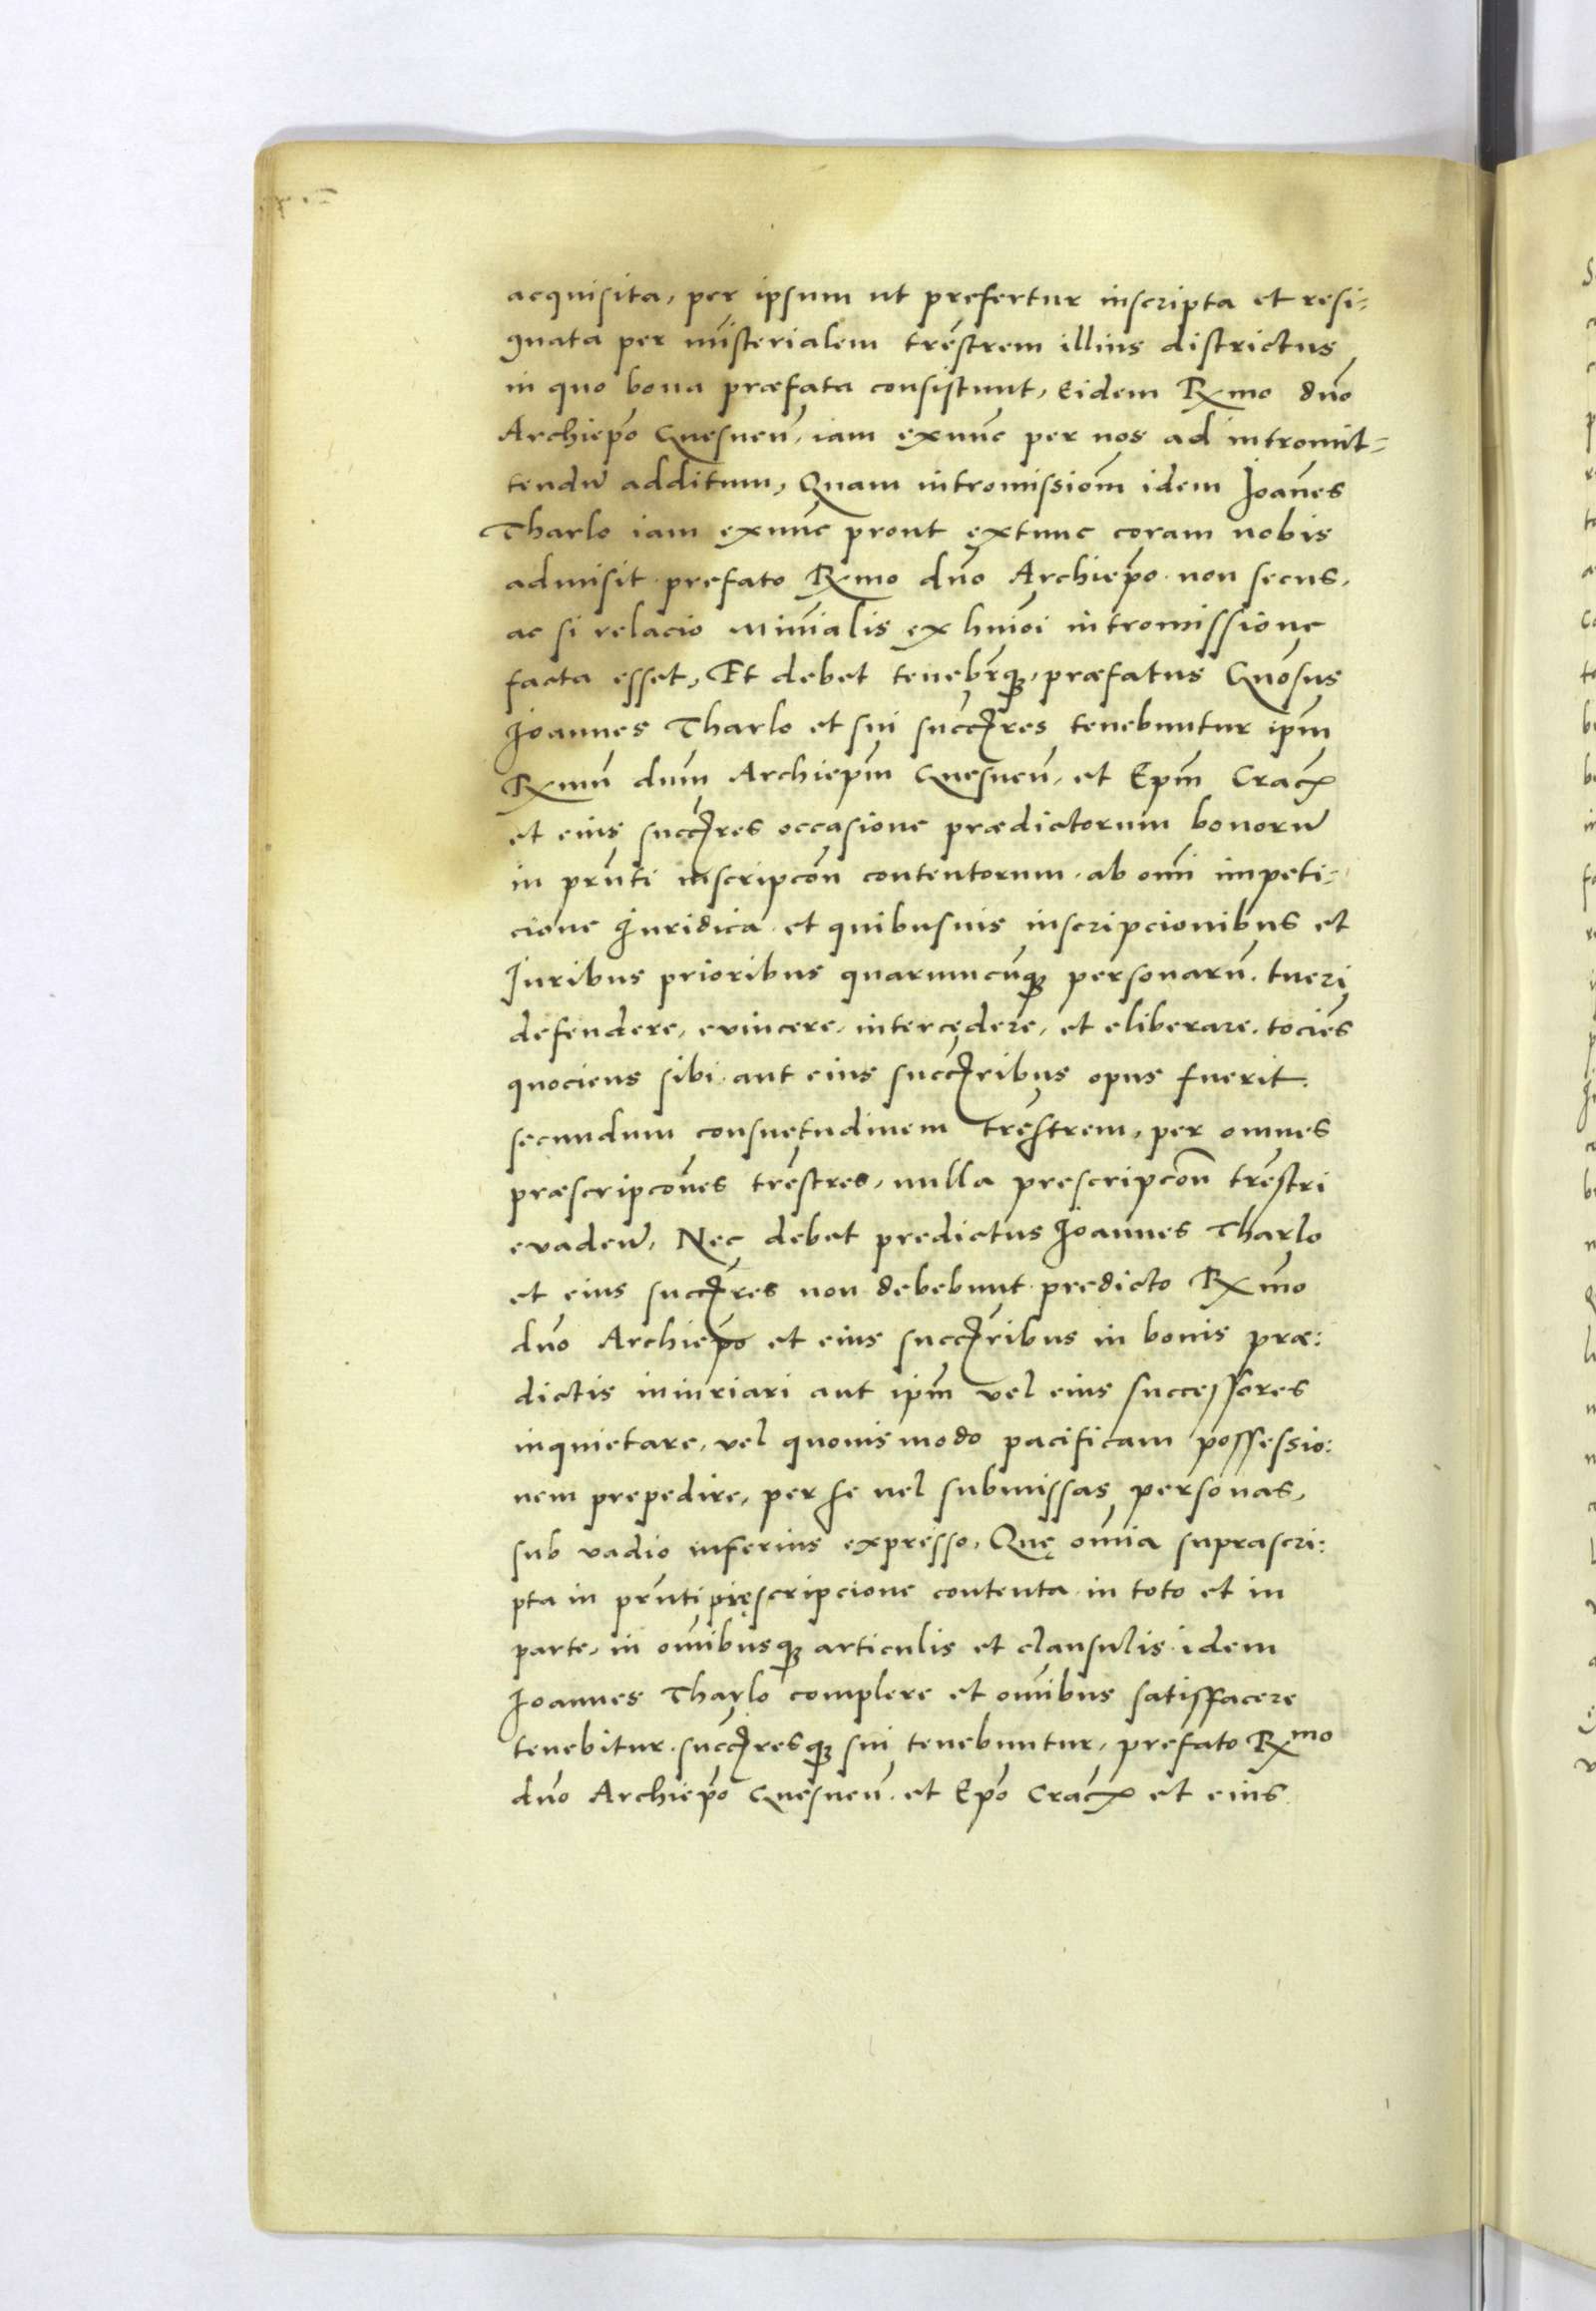 acquisita, per ipsum ut prefertur inscripta et resi=
gnata per mīsterialem trēstrem illius districtus
in quo bona præfata consistunt, Eidem Rmo dńo
Archiepō Gnesneń, iam exnūc per nos ad intromit=
tendū additum, Quam intromissiom̄ idem Joañes
Tharlo iam exnūc prout extunc coram nobis
admisit prefato Rmo dńo Archiepō non secus,
ac si relacio Minīalis ex huiōi intromissione
facta esset, Et debet tenebr̄q; præfatus Gnōsus
Joannes Tharlo et sui succ̄res tenebuntur ipm̄
Rmū dum̄ Archiepm̄ Gnesneń, et Epm̄ Crac̄
et eius succ̄res occasione prædictorum bonorū
in prn̄ti inscripcōn contentorum, ab om̄i impeti=
cione Juridica et quibusuis inscripcionibus et
Juribus prioribus quarumcūq; personarū, tueri
defendere, evincere, intercędere, et eliberare, tociēs
quociens sibi aut eius succ̄ribus opus fuerit,
secundum consuetudinem trēstrem, per omnes
præscripcōnes trēstres, nulla prescripcōn trēstri
evadeñ, Nec debet predictus Joannes Tharlo
et eius succ̄res non debebunt predicto Rmo
dńo Archiepō et eius succ̄ribus in bonis præ:
dictis iniuriari aut ipm̄ vel eius successores
inquietare, vel quouis modo pacificam possessio:
nem prepedire, per se uel submissas personas,
sub vadio inferius expresso, Quę omīa suprascri:
pta in prn̄ti pręscripcione contenta in toto et in
parte, in omībusq; articulis et clausulis idem
Joannes Tharlo complere et omībus satisfacere
tenebitur, succ̄resq; sui tenebuntur, prefato Rmo
dńo Archiepō Gnesneń, et Epō Crac̄ et eius